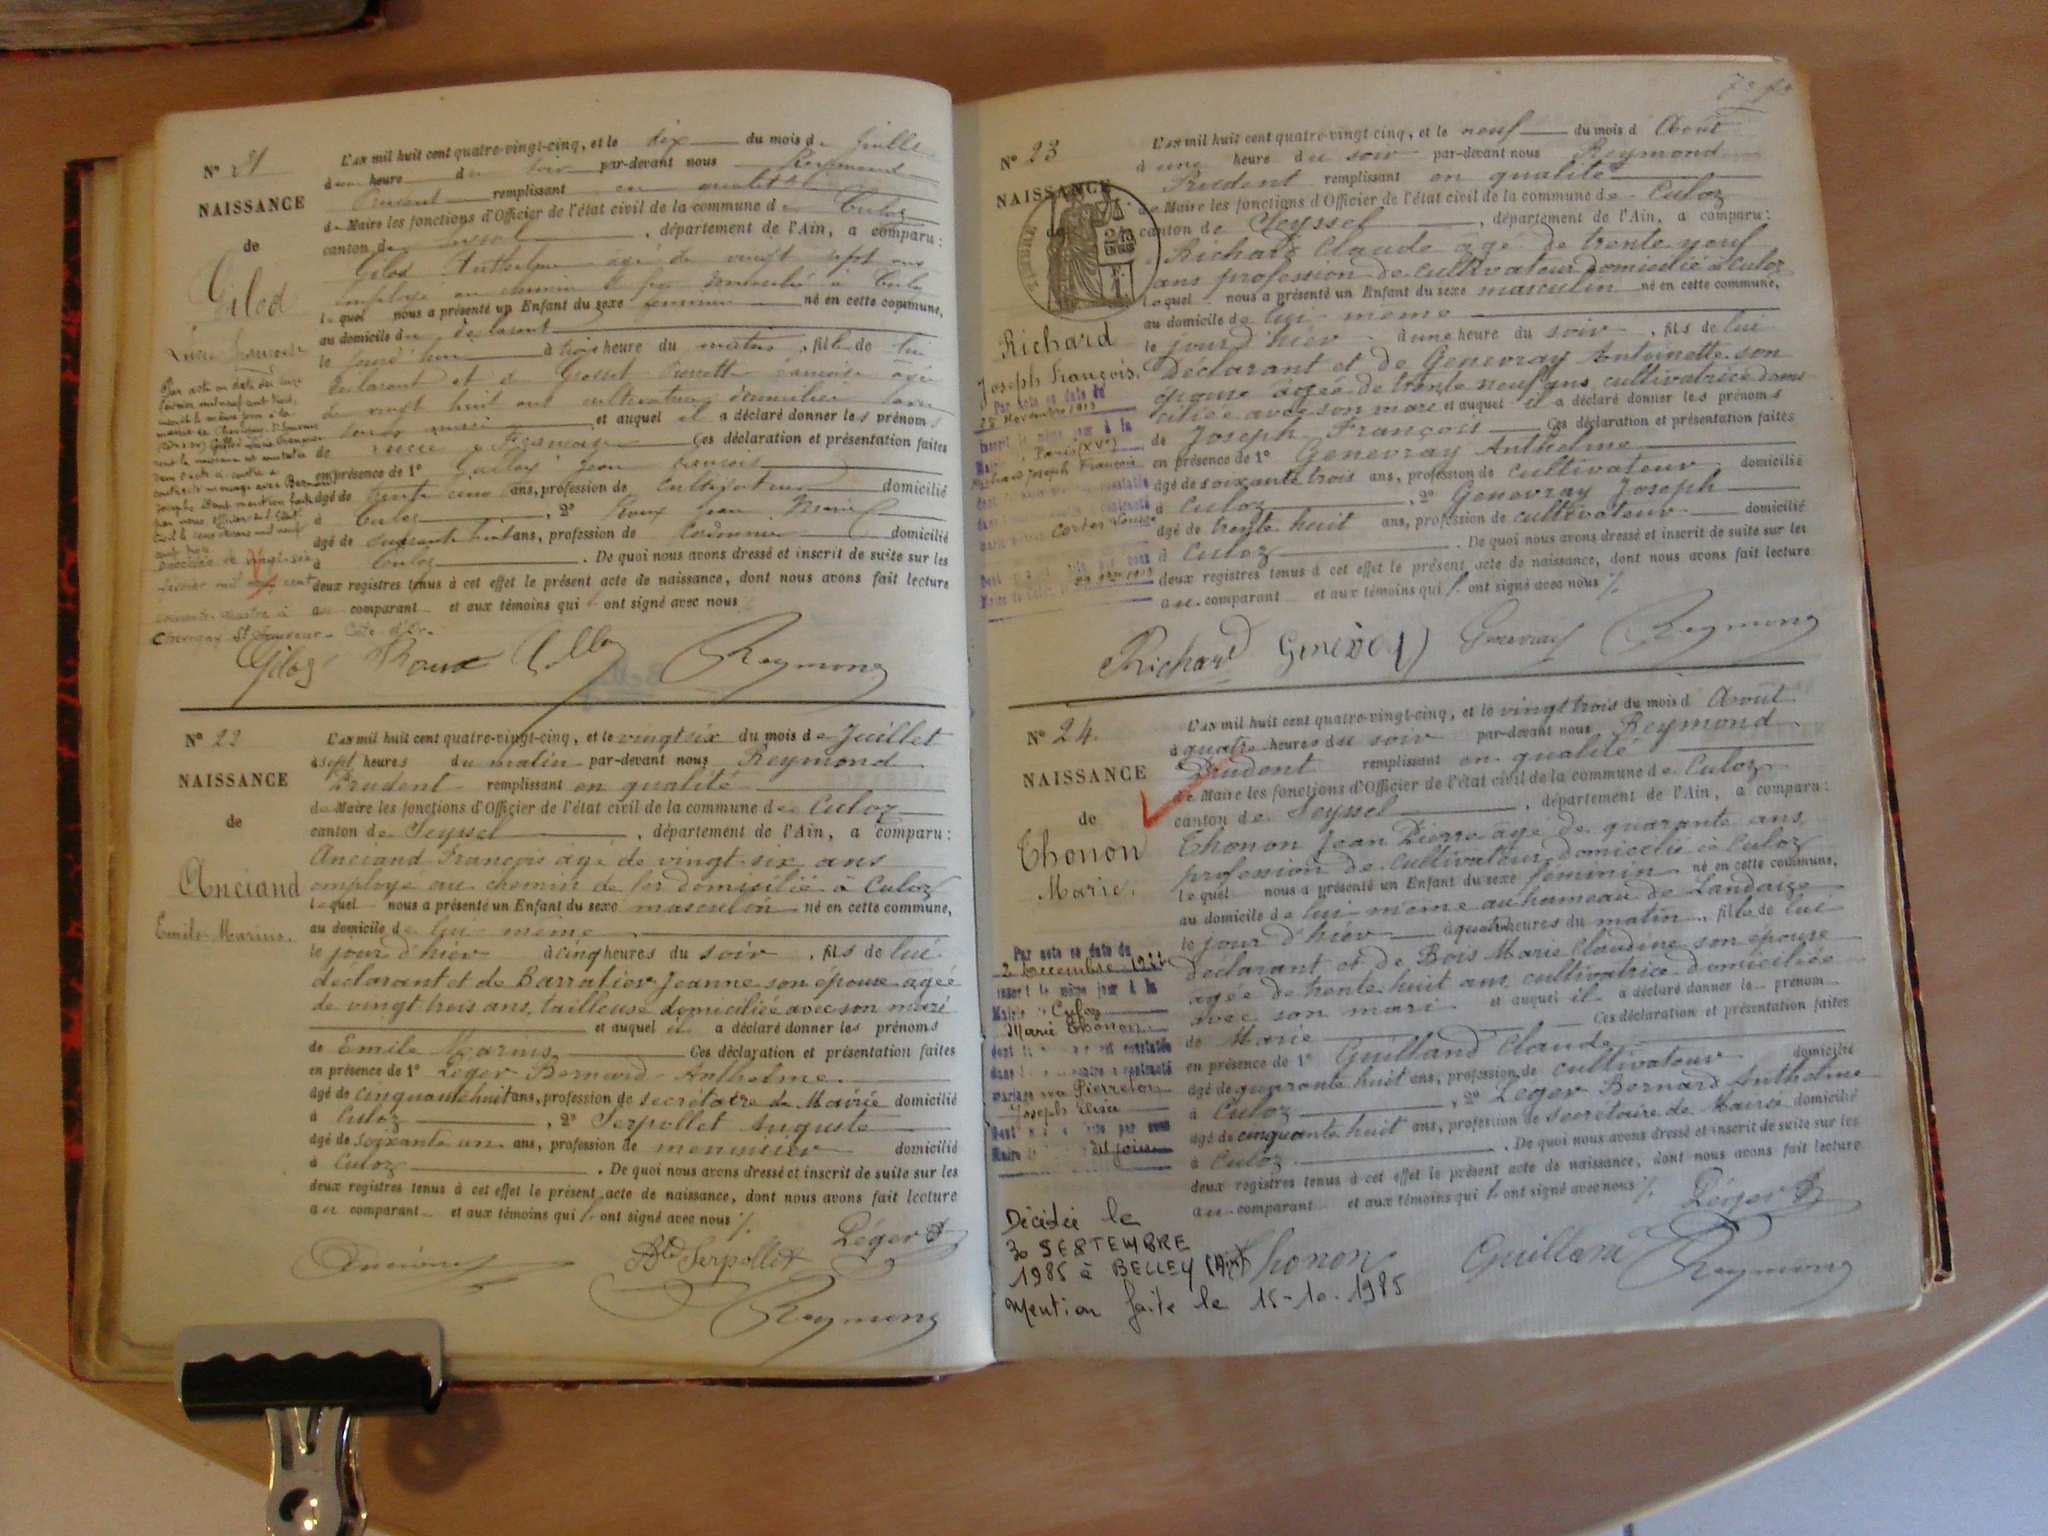 N° 21
NAISSANCE
de
Gilod
L'an mil huit cent quatre-vingt-cinq, et le dix du mois de Juillet
à une heure du soir par-devant nous Reymond
Prudent remplissant en qualité
de Maire les fonctions d'Officier de l'état civil de la commune de Culoz
canton de Seyssel, département de l'Ain, a comparu:
Gilod Anthelme âgé de vingt sept ans
employé au chemin de fer domicilié à Culoz
lequel nous a présenté un Enfant du sexe féminin né en cette commune,
au domicile du déclarant
le jour d'hier à trois heure du matin, fille de lui
déclarant et de Grosset âgée
de vingt huit ans cultivatrice domiciliée avec
son mari et auquel il a déclaré donner les prénoms
de Lucie Françoise Ces déclaration et présentation faites
en présence de 1° Galley Jean François
âgé de trente cinq ans, profession de Cultivateur domicilié
à Culoz, 2° Roux Jean Marie
âgé de ans, profession de domicilié
à Culoz. De quoi nous avons dressé et inscrit de suite sur les
deux registres tenus à cet effet le présent acte de naissance, dont nous avons fait lecture
au comparant et aux témoins qui ont signé avec nous
Gilod Roux Reymond
N° 22
NAISSANCE
de
Anciand
Emile Marius.
L'an mil huit cent quatre-vingt-cinq, et le vingt six du mois de Juillet
à sept heures du matin par-devant nous Reymond
Prudent remplissant en qualité
de Maire les fonctions d'Officier de l'état civil de la commune de Culoz
canton de Seyssel, département de l'Ain, a comparu:
Anciand François âgé de vingt six ans
employé au chemin de fer domicilié à Culoz
lequel nous a présenté un Enfant du sexe masculin né en cette commune,
au domicile de lui même
le jour d'hier à cinq heures du soir, fils de lui
déclarant et de Barratier Jeanne son épouse agée
de vingt trois ans, tailleuse domiciliée avec son mari
et auquel il a déclaré donner les prénoms
de Emile Marius Ces déclaration et présentation faites
en présence de 1° Léger Bernard Anthelme
âgé de cinquante huit ans, profession de secrétaire de Mairie domicilié
à Culoz, 2° Serpollet Auguste
âgé de soixante un ans, profession de menuisier domicilié
à Culoz. De quoi nous avons dressé et inscrit de suite sur les
deux registres tenus à cet effet le présent acte de naissance, dont nous avons fait lecture
au comparant et aux témoins qui ont signé avec nous
Serpollet Léger B
Reymond
N° 23
NAISSANCE
de
Richard
Joseph François.
L'an mil huit cent quatre-vingt cinq, et le neuf du mois d Août
à une heure du soir par-devant nous Reymond
Prudent remplissant en qualité
de Maire les fonctions d'Officier de l'état civil de la commune de Culoz
canton de Seyssel, département de l'Ain, a comparu:
Richard Claude âgé de trente neuf
ans profession de cultivateur domicilié à Culoz
lequel nous a présenté un Enfant du sexe masculin né en cette commune,
au domicile de lui même
le jour d'hier à une heure du soir, fils de lui
déclarant et de Genevray Antoinette son
épouse âgée de trente neuf ans, cultivatrice domi
ciliée avec son mari et auquel il a déclaré donner les prénoms
de Joseph François Ces déclaration et présentation faites
en présence de 1° Genevray Anthelme
âgé de soixante trois ans, profession de cultivateur domicilié
à Culoz, 2° Genevray Joseph
âgé de trente huit ans, profession de cultivateur domicilié
à Culoz. De quoi nous avons dressé et inscrit de suite sur les
deux registres tenus à cet effet le présent acte de naissance, dont nous avons fait lecture
au comparant et aux témoins qui ont signé avec nous
Richard Genevray Reymond
N° 24
NAISSANCE
de
Thonon
Marie.
L'an mil huit cent quatre-vingt-cinq, et le vingt trois du mois d Août
à quatre heures du soir par-devant nous Reymond
Prudent remplissant en qualité
de Maire les fonctions d'Officier de l'état civil de la commune de Culoz
canton de Seyssel, département de l'Ain, a comparu:
Thonon Jean Pierre âgé de quarante ans,
profession de cultivateur domicilié à Culoz
lequel nous a présenté un Enfant du sexe féminin né en cette commune,
au domicile de lui même au hameau de Landaize
le jour d'hier à quatre heures du matin, fille de lui
déclarant et de Bois Marie Claudine son épouse
agée de trente huit ans, cultivatrice domiciliée
avec son mari et auquel il a déclaré donner le prénom
de Marie Ces déclaration et présentation faites
en présence de 1° Guilland Claude
âgé de quarante huit ans, profession de cultivateur domicilié
à Culoz, 2° Léger Bernard Anthelme
âgé de cinquante huit ans, profession de secrétaire de Mairie domicilié
à Culoz. De quoi nous avons dressé et inscrit de suite sur les
deux registres tenus à cet effet le présent acte de naissance, dont nous avons fait lecture
au comparant et aux témoins qui ont signé avec nous
Par acte en date du
2 Décembre
Culoz
Marie Thonon
Joseph
Décédée le
30 SEPTEMBRE
1985 à BELLEY (Ain)
Mention faite le 15-10-1985
Léger B
Thonon Guilland Reymond